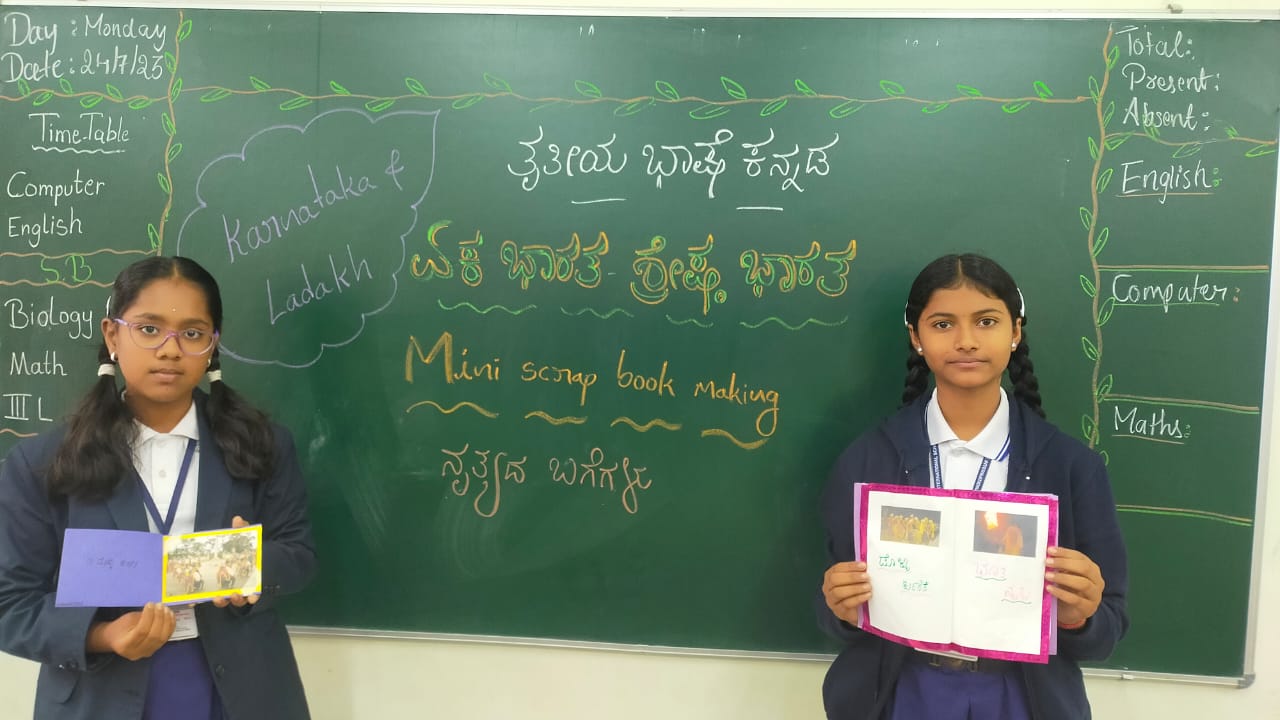 Day : Monday
Date : 24/7/23
Time-Table
Computer
English
S.B
Biology
Math
III L
Karnataka &
Ladakh
ತೃತೀಯ ಭಾಷೆ ಕನ್ನಡ
ಏಕ ಭಾರತ - ಶ್ರೇಷ್ಠ ಭಾರತ
Mini scrap book making
ನೃತ್ಯದ ಬಗೆಗಳು
Total:
Present:
Absent:
English:
Computer:
Maths:
ಡೊಳ್ಳು
ಕುಣಿತ